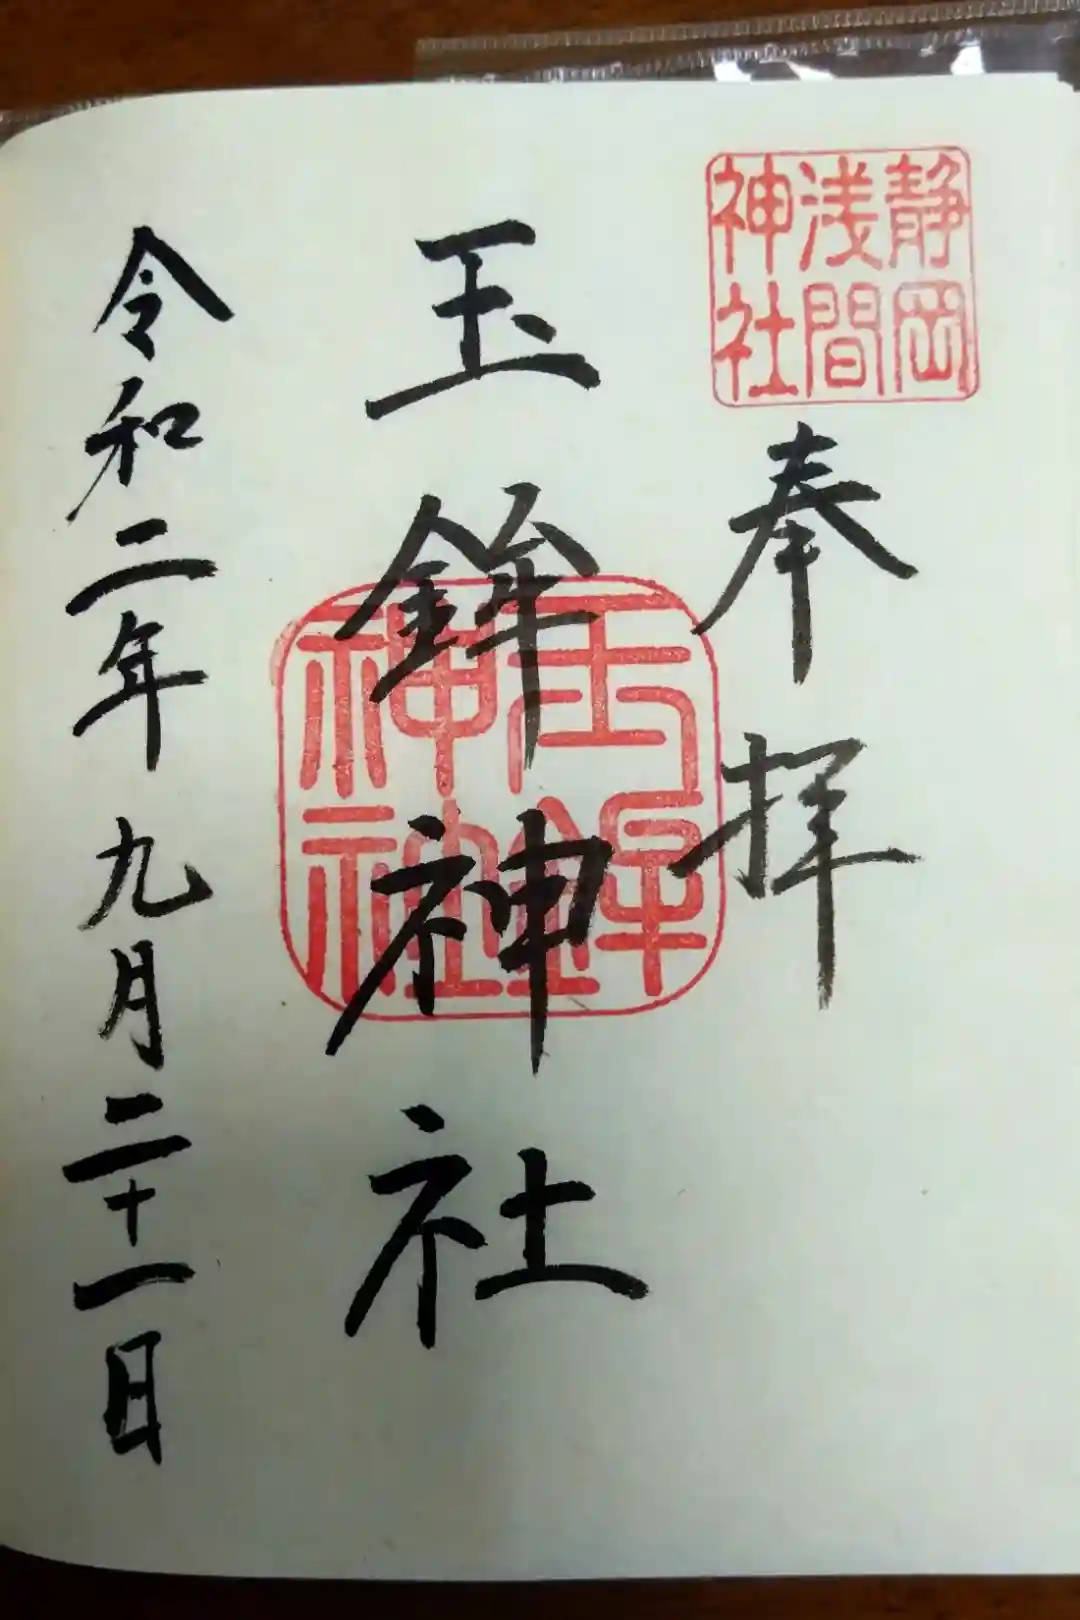 静岡
浅間
神社
奉拝
玉鉾
神社
玉鉾神社
令和二年九月二十一日